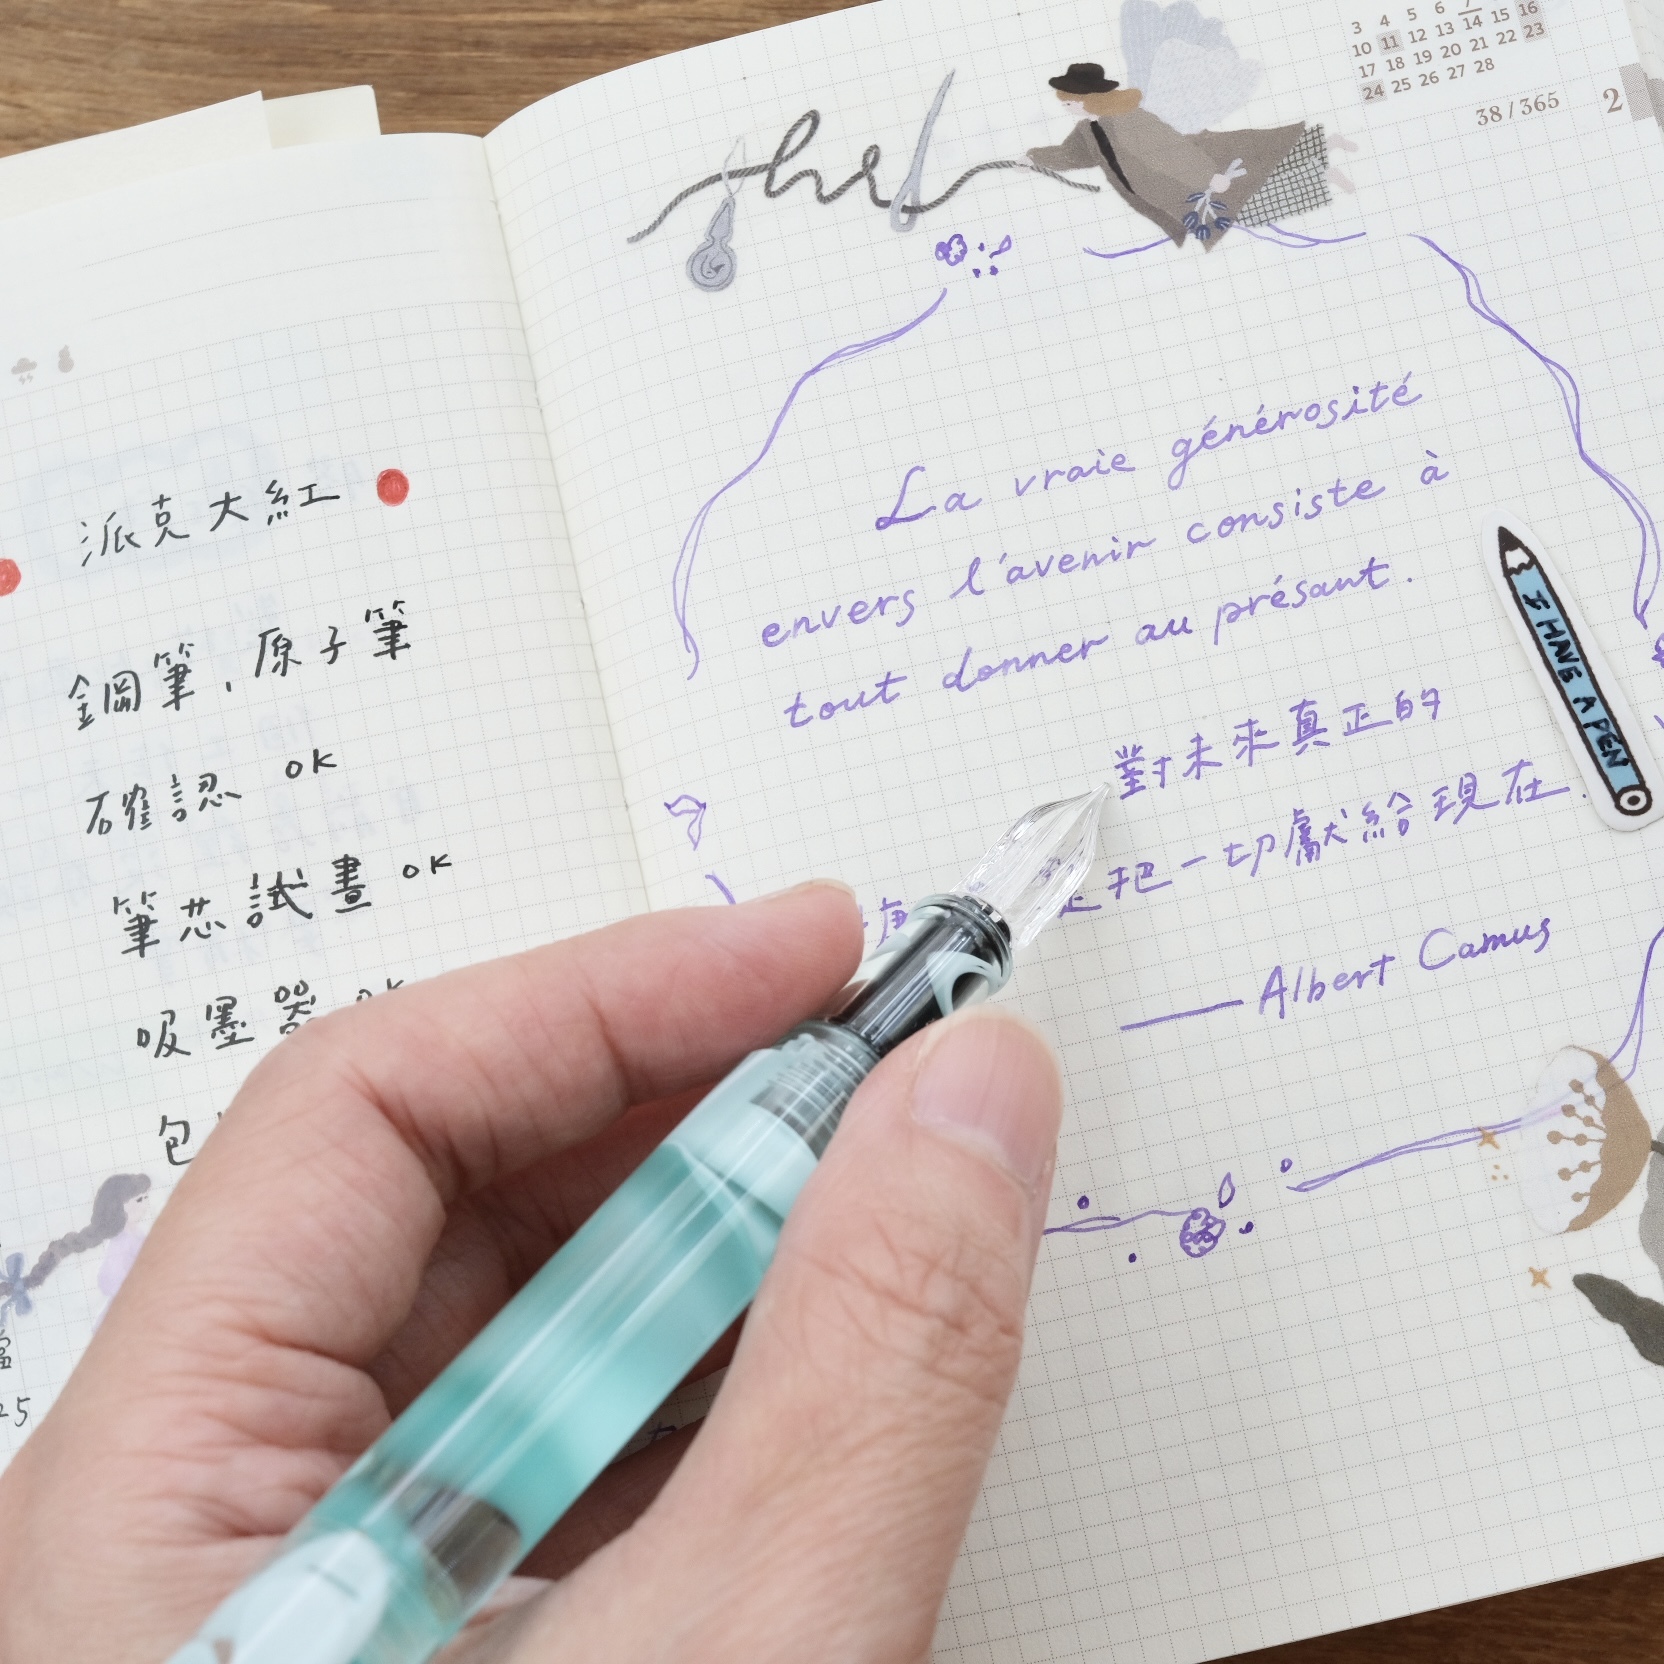 派克大紅
鋼筆,原子筆
確認 OK
筆芯試畫 OK
吸墨器 OK
包
25
3 4 5 6 7
10 11 12 13 14 15 16
17 18 19 20 21 22 23
24 25 26 27 28
38/365
2
La vraie générosité
envers l'avenir consiste à
tout donner au présant.
對未來真正的
把一切獻給現在.
——Albert Camus
I HAVE A PEN